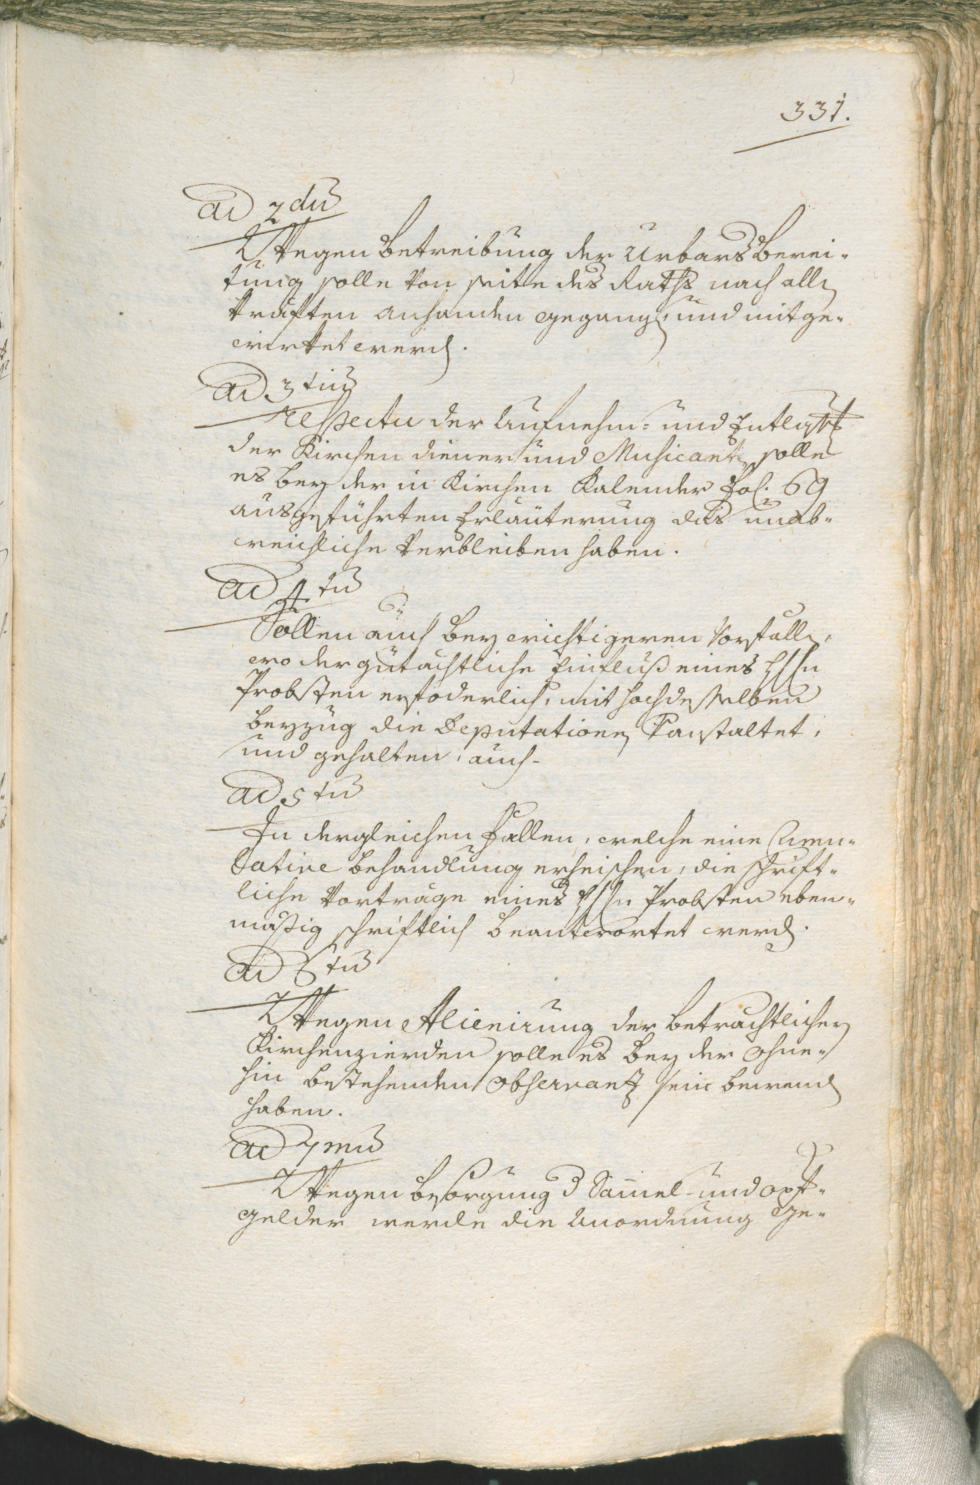 331.
ad 2dū
Wegen betreibung der Urbars berei-
tung solle von seite des Raths nach alln
kräften anhanden gegangen, und mitge-
wirket werd.
ad 3tiū
respectu der Aufnehm- und Entlaß
der Kirchen diener und Musicantn solle
es bey der in Kirchen Kalender Fol. 69
ausgeführten Erläuterung das unab-
weichliche Verbleiben haben.
ad 4tū
Sollen auch bey wichtigeren Vorfalln,
wo der gutachtliche Einfluß eines Hhn
Probsten erfoderlich, mit hochdesselben
beyzug die Deputationen Vanstaltet,
und gehalten, auch-
ad 5tū
In dergleichen fällen, welche eine Cumu-
lative behandlung erheischen, die schrift-
liche Vorträge eines Hhn Probsten eben-
mäßig schriftlich beantwortet werd.
ad 6tū
Wegen Alienirung der betrachtlichen
Kirchenzierden solle es bey der ohne-
hin bestehenden observantz sein bewend
haben.
ad 7mū
Wegen besorgung d Samel- und opf-
gelder werde die Anordnung ge-